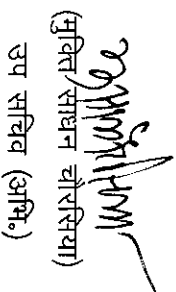 (मुक्ति साधन चौरसिया)
उप सचिव (अभि.)